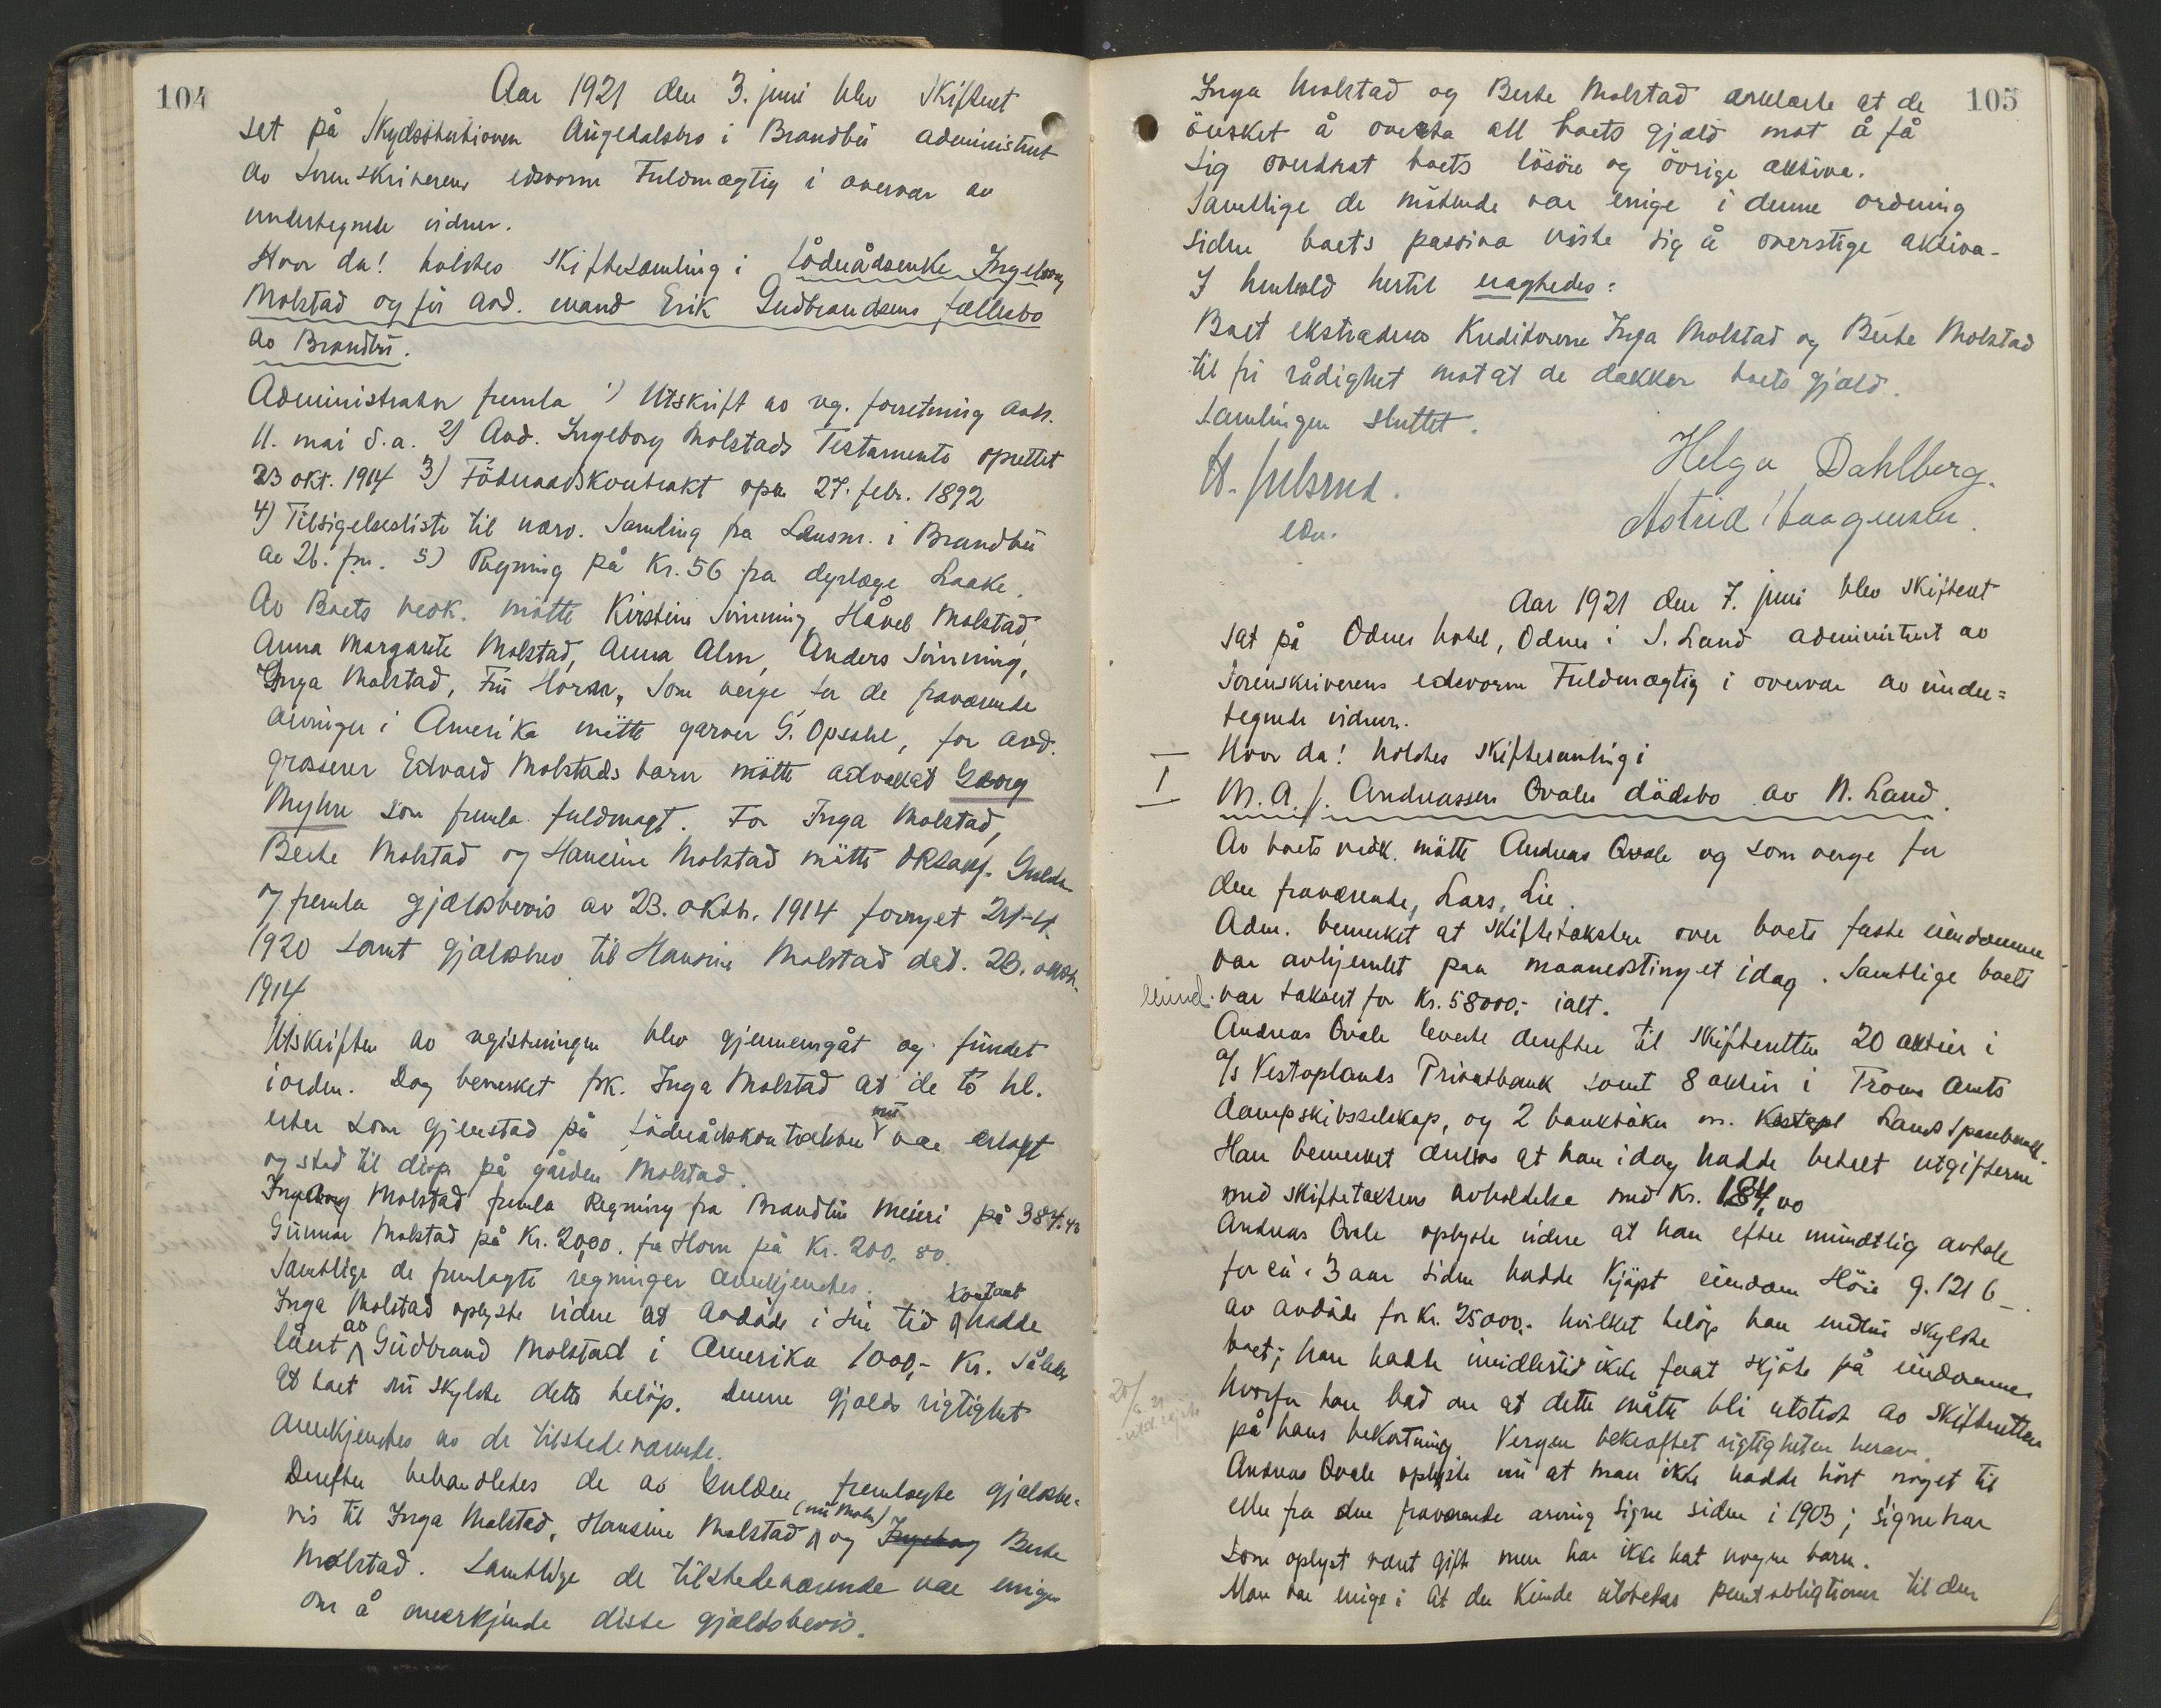 104
Aar 1921 den 3. juni blev skifteret
set på Skydsstationen Augedalsbro i Brandbu administrert
av Sorenskriverens edsvorne Fuldmægtig i overvær av
undertegnede vidner.
Hvor da! holdtes skiftesamling i födrådsenke Ingeborg
Molstad og før avd. mand Erik Gudbrandsens fællesbo
av Brandbu.
Administrator fremla 1) Utskrift av reg. forretning avh.
11. mai d.a. 2) Avd. Ingeborg Molstads Testamente oprettet
23 okt. 1914 3) Föderaadskontrakt opr. 27. febr. 1892
4) Tilsigelsesliste til nærv. Samling fra Lensm. i Brandbu
av 26. f.m. 5) Regning på Kr. 56 fra dyrlæge Laake.
Av Boets vedk. mötte Kirstine Svinning, Håvel Molstad,
Anna Margrete Molstad, Anna Alm, Anders Svinning,
Inga Molstad, Fru Horn, Som verge for de fraværende
arvinger i Amerika mötte garver G. Opsahl, for avd.
grosserer Edvard Molstads barn mötte advokat Georg
Myhre som fremla fuldmagt. For Inga Molstad,
Berte Molstad og Hansine Molstad mötte ORsakf. Gulden
og fremla gjældsbevis av 23. oktb. 1914 fornyet 24-4
1920 samt gjældsbrev til Hansine Molstad dat. 23. oktb.
1914
Utskriften av registreringen blev gjennemgåt og fundet
i orden. Dog bemerket frk. Inga Molstad at de to hl.
erter som gjenstod på föderådskontrakten nu var erlagt
og stod til disp. på gården Molstad.
Ingeborg Molstad fremla Regning fra Brandbu Meieri på 384.43
Gunnar Molstad på Kr. 20,00. fru Horn på Kr. 200.00.
Samtlige de fremlagte regninger anerkjendtes.
Inga Molstad oplyste videre at avdöde i sin tid kontant hadde
lånt av Gudbrand Molstad i Amerika 1000,- Kr. Således
at boet nu skyldte dette belöp. Denne gjælds rigtighet
anerkjendtes av de tilstedeværende.
Derefter behandledes de av Gulden fremlagte gjældsbe-
vis til Inga Molstad, Hansine Molstad (nu Moln) og Ingeborg Berte
Molstad. Samtlige de tilstedeværende var enige
om å anerkjende disse gjældsbevis.
105
Inga Molstad og Berte Molstad erklærte at de
önsket å overta all boets gjæld mot å få
sig overdrat boets lösöre og övrige aktiva.
Samtlige de mötende var enige i denne ordning
siden boets passiva viste sig å overstige aktiva.
I henhold hertil eragtedes:
Boet ekstraderes Kreditorerne Inga Molstad og Berte Molstad
til fri rådighet mot at de dækker boets gjæld.
Samlingen sluttet.
Helga Dahlberg.
Astrid Haagensen.
edsv.
Aar 1921 den 7. juni blev skifteret
sat på Odnes hotel, Odnes i S. Land administrert av
Sorenskriverens edsvorne Fuldmægtig i overvær av under=
tegnede vidner.
Hvor da! holdtes skiftesamling i
I M. A. f. Andreassen Qvales dödsbo av N. Land.
Av boets vedk. mötte Andreas Qvale og som verge for
den fraværende, Lars Lie.
Adm. bemerket at skiftetaksten over boets faste eiendomme
var avhjemlet paa maanedstinget idag. Samtlige boets
eiend. var taksert for Kr. 58000,- ialt.
Andreas Qvale leverte derefter til skifteretten 20 aktier i
A/s Vestoplands Privatbank samt 8 aktier i Troms Amts
dampskibsselskap, og 2 bankböker m. Vestopl Lands Sparebank.
Han bemerket derhos at han idag hadde betalt utgifterne
med skiftetakstens avholdelse med Kr. 184,00
Andreas Qvale oplyste videre at han efter mundtlig avtale
for ca. 3 aar siden hadde kjöpt eiendom Höie g. 121 6
av avdöde for Kr. 25000,- hvilket belöp han endnu skyldte
boet; han hadde imidlertid ikke faat skjöte på eiendommen
hvorfor han bad om at dette måtte bli utstedt av skifteretten
på hans bekostning. Vergen bekræftet rigtigheten herav.
Andreas Qvale oplyste nu at man ikke hadde hört noget til
eller fra den fraværende arving Signe siden i 1903; Signe har
som oplyst været gift men har ikke hat nogen barn.
Man var enige i at der kunde utstedes panteobligtioner til den